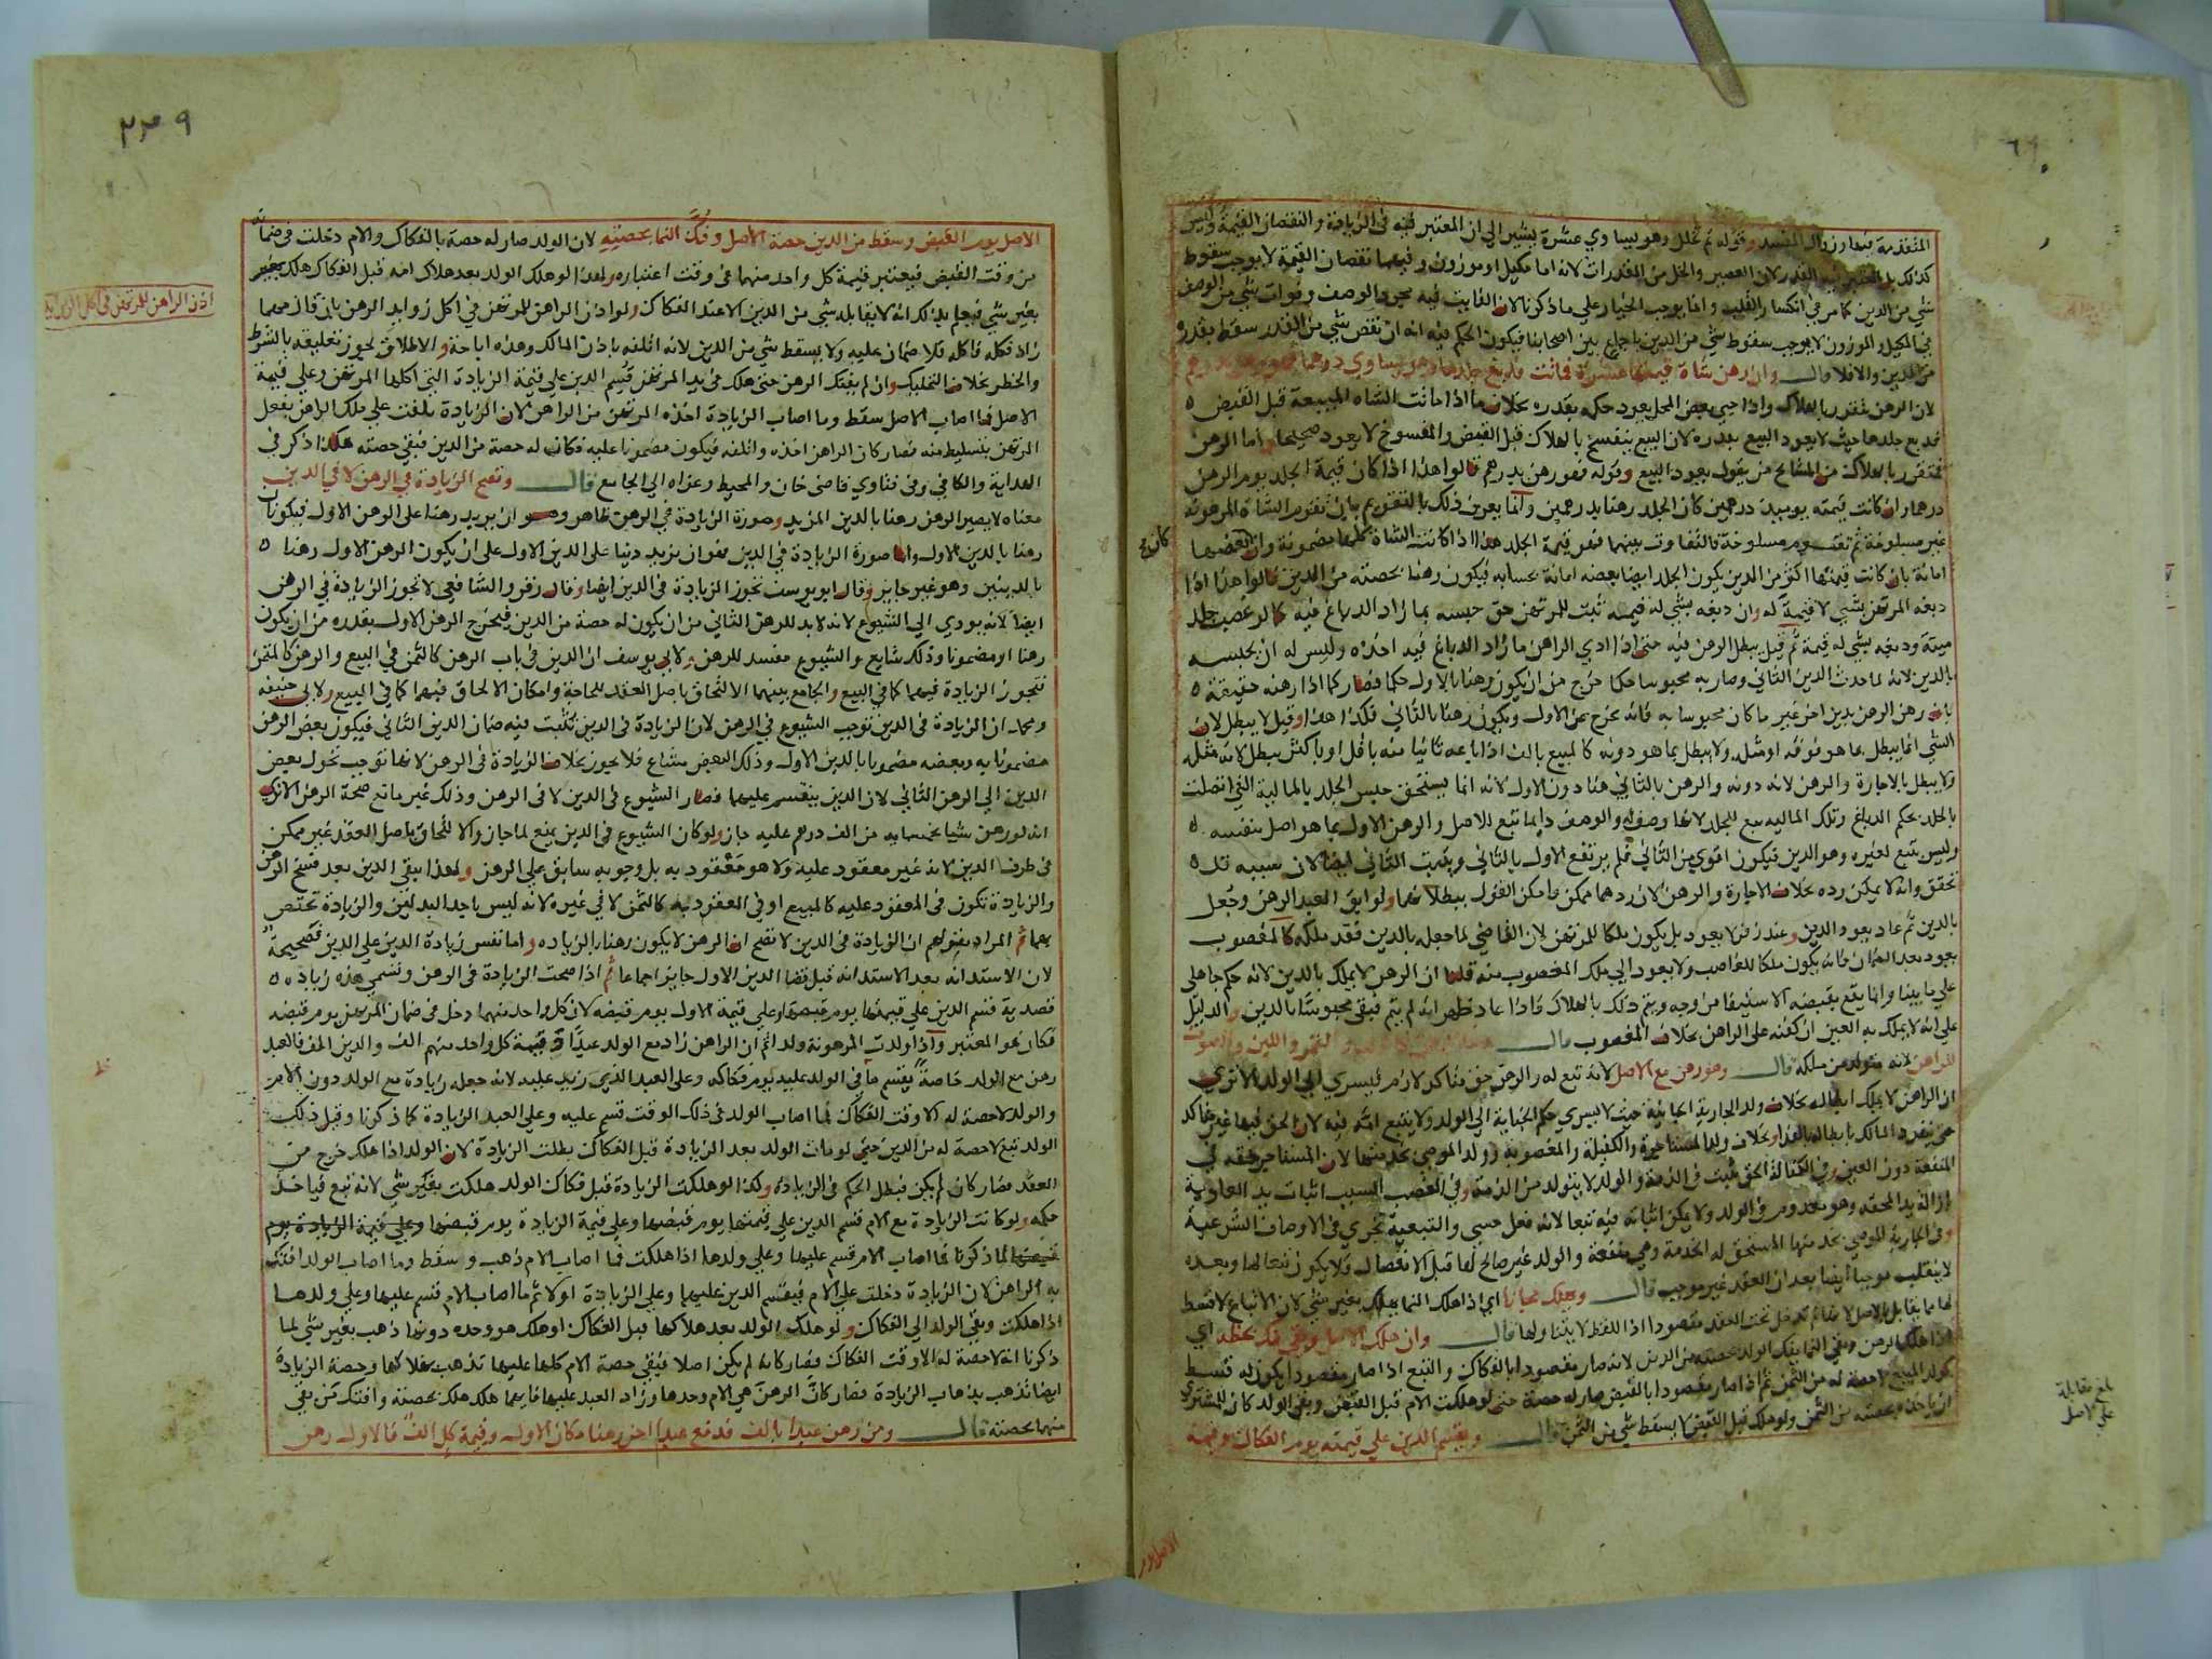 المتقدمة بتدارزوال المفسد وقوله ثم تخلل وهو يساوي عشرة يشير الى ان المعتبر فيه في الزيادة والنقصان القيمة وليس
كذلك بل المعتبر فيه القدر لان العصير والخل من المقدرات لانه اما مكيل او موزون وفيهما نقصان القيمة لا يوجب سقوط
شي من الدين كما مر في انكسار القلب وانما يوجب الخيار على ما ذكرنا لان الفايت فيه مجرد الوصف وفوات شي من الوصف
في المكيل والموزون لا يوجب سقوط شي من الدين باجماع بين اصحابنا فيكون الحكم فيه انه ان نقص شي من القدر سقط بقدره
من الدين والا فلا قال وان رهن شاة قيمتها عشرة فماتت فدبغ جلدها وهو يساوي درهما فهو رهن بدرهم
لان الرهن يتقرر بالهلاك واذا حيي بعض المحل يعود حكمه بقدره بخلاف ما اذا ماتت الشاة المبيعة قبل القبض
فدبغ جلدها حيث لا يعود البيع بقدره لان البيع ينفسخ بالهلاك قبل القبض والمفسوخ لا يعود صحيحا اما الرهن
فيتقرر بالهلاك ومن المشايخ من يقول يعود البيع وقوله فهو رهن بدرهم قالوا هذا اذا كان قيمة الجلد يوم الرهن
درهما وان كانت قيمته يوميذ درهمين كان الجلد رهنا بدرهمين وانما يعرف ذلك بالتقويم بان تقوم الشاة المرهونة
غير مسلوخة ثم تقوم مسلوخة فالتفاوت بينهما هو قيمة الجلد هذا اذا كانت الشاة كلها مضمونة وان بعضها
امانة بان كانت قيمتها اكثر من الدين يكون الجلد ايضا بعضه امانة بحسابه فيكون رهنا بحصته من الدين قالوا هذا اذا
دبغه المرتهن بشي لا قيمة له وان دبغه بشي له قيمة ثبت للمرتهن حق حبسه بما زاد الدباغ فيه كما لو غصب جلد
ميتة ودبغه بشي له قيمة ثم قيل يبطل الرهن فيه حتى اذا ادى الراهن ما زاد الدباغ فيه اخذه وليس له ان يحبسه
بالدين لانه لما حدث الدين الثاني وصار به محبوسا حكما خرج من ان يكون رهنا بالاول حكما فصار كما اذا رهنه حقيقة
بان رهن الرهن بدين اخر غير ما كان محبوسا به فانه يخرج عن الاول ويكون رهنا بالثاني فكذا هذا وقيل لا يبطل لان
الشي انما يبطل بما هو فوقه او مثله ولا يبطل بما هو دونه كالمبيع بالف اذا باعه ثانيا منه باقل او باكثر يبطل لانه مثله
ولا يبطل بالاجارة والرهن لانه دونه والرهن بالثاني هنا دون الاول لانه انما يستحق حبس الجلد بالمالية التي اتصلت
بالجلد بحكم الدباغ وتلك المالية تبع للجلد لانها وصفه والوصف دايما تبع للاصل والرهن الاول بما هو اصل بنفسه
وليس بتبع لغيره وهو الدين فيكون اقوى من الثاني فلم يرتفع الاول بالثاني ويثبت الثاني ايضا لان سببه قد
تحقق وانه لا يمكن رده بخلاف الاجارة والرهن لان ردهما ممكن فامكن القول ببطلانهما ولو ابق العبد الرهن وجعل
بالدين ثم عاد يعود الدين وعند زفر لا يعود بل يكون ملكا للمرتهن لان القاضي لما جعله بالدين فقد ملكه كالمغصوب
يعود بعد الضمان فانه يكون ملكا للغاصب ولا يعود الى ملك المغصوب منه قلنا ان الرهن لا يملك بالدين لانه حكم جاهلي
على ما بينا وانما يقع بقبضه الاستيفا من وجه ويتم ذلك بالهلاك فاذا عاد ظهر انه لم يتم فبقي محبوسا بالدين والدليل
على انه لا يملك به العين ان كفنه على الراهن بخلاف المغصوب قال والثمر واللبن والصوف
للراهن لانه متولد من ملكه قال وهو رهن مع الاصل لانه تبع له والرهن حق متاكد لازم فيسري الى الولد الا ترى
ان الراهن لا يملك ابطاله بخلاف ولد الجارية الجانية حيث لا يسري حكم الجناية الى الولد ولا يتبع امه فيه لان الحق فيها غير متاكد
حتى ينفرد المالك بابطاله بالفدا وبخلاف ولد المستاجرة والكفيلة والمغصوبة وولد الموصى بخدمتها لان المستاجر حقه في
المنفعة دون العين وفي الكفالة الحق يثبت في الذمة والولد لا يتولد من الذمة وفي الغصب السبب اثبات يد العادية
بازالة يد المحقة وهو معدوم في الولد ولا يمكن اثباته فيه تبعا لانه فعل حسي والتبعية تجري في الاوصاف الشرعية
وفي الجارية الموصى بخدمتها المستحق له الخدمة وهي منفعة والولد غير صالح لها قبل الانفصال فلا يكون تبعا لها وبعده
لا ينقلب موجبا ايضا بعد ان انعقد غير موجب قال ويهلك مجانا اي اذا هلك النما يهلك بغير شي لان الاتباع لا قسط
لها مما يقابل بالاصل لانها لم تدخل تحت العقد مقصودا اذ اللفظ لا يتناولها قال وان هلك الاصل وبقي النما فك بحظه اي
اذا هلك الرهن وبقي النما يفك الولد بحصته من الدين لانه صار مقصودا بالفكاك والتبع اذا صار مقصودا يكون له قسط
كولد المبيع لا حصة له من الثمن ثم اذا صار مقصودا بالقبض صار له حصة حتى لو هلكت الام قبل القبض وبقي الولد كان للمشتري
ان ياخذه بحصته من الثمن ولو هلك قبل القبض لا يسقط شي من الثمن قال ويقسم الدين على قيمته يوم الفكاك وقيمة
بلغ مقابلة
على الاصل
الاصل يوم
٢٣٩
الاصل يوم القبض وسقط من الدين حصة الاصل وفك النما بحصته لان الولد صار له حصة بالفكاك والام دخلت في ضمانه
من وقت القبض فيعتبر قيمة كل واحد منهما في وقت اعتباره ولهذا لو هلك الولد بعد هلاك امه قبل الفكاك هلك بغير
بغير شي فيعلم بذلك انه لا يقابله شي من الدين الا عند الفكاك ولو اذن الراهن للمرتهن في اكل زوايد الرهن بان قال مهما
زاد فكله فاكله فلا ضمان عليه ولا يسقط شي من الدين لانه اتلفه باذن المالك وهذه اباحة والاطلاق يجوز تعليقه بالشرط
والخطر بخلاف التمليك وان لم يفتك الرهن حتى هلك في يد المرتهن قسم الدين على قيمة الزيادة التي اكلها المرتهن وعلى قيمة
الاصل فما اصاب الاصل سقط وما اصاب الزيادة اخذه المرتهن من الراهن لان الزيادة تلفت على ملك الراهن بفعل
المرتهن بتسليط منه فصار كان الراهن اخذه واتلفه فيكون مضمونا عليه فكان له حصة من الدين فبقي حصته هكذا ذكر في
الهداية والكافي وفي فتاوي قاضي خان والمحيط وعزاه الى الجامع قال وتصح الزيادة في الرهن لا في الدين
معناه لا يصير الرهن رهنا بالدين المزيد وصورة الزيادة في الرهن ظاهر وهو ان يزيد رهنا على الرهن الاول فيكونان
رهنا بالدين الاول واما صورة الزيادة في الدين فهو ان يزيد دينا على الدين الاول على ان يكون الرهن الاول رهنا
بالدينين وهو غير جايز وقال ابو يوسف تجوز الزيادة في الدين ايضا وقال زفر والشافعي لا تجوز الزيادة في الرهن
ايضا لانه يودي الى الشيوع لانه لا بد للرهن الثاني من ان يكون له حصة من الدين فيخرج الرهن الاول بقدره من ان يكون
رهنا او مضمونا وذلك شايع والشيوع مفسد للرهن ولابي يوسف ان الدين في باب الرهن كالثمن في البيع والرهن كالمثمن
فتجوز الزيادة فيهما كما في البيع والجامع بينهما الالتحاق باصل العقد للحاجة وامكان الالحاق فيهما كما في البيع ولابي حنيفة
ومحمد ان الزيادة في الدين توجب الشيوع في الرهن لان الزيادة في الدين تثبت فيه ضمان الدين الثاني فيكون بعض الرهن
مضمونا به وبعضه مضمونا بالدين الاول وذلك البعض مشاع فلا يجوز بخلاف الزيادة في الرهن لانها توجب تحول بعض
الدين الى الرهن الثاني لان الدين ينقسم عليهما فصار الشيوع في الدين لا في الرهن وذلك غير مانع صحة الرهن الا ترى
انه لو رهن شيا بخمسمايه من الف درهم عليه جاز ولو كان الشيوع في الدين يمنع لما جاز والالتحاق باصل العقد غير ممكن
في طرف الدين لانه غير معقود عليه ولا هو معقود به بل وجوبه سابق على الرهن ولهذا يبقى الدين بعد فسخ الرهن
والزيادة تكون في المعقود عليه كالمبيع او في المعقود به كالثمن لا في غيره لانه ليس باحد البدلين والزيادة تختص
بهما ثم المراد بقولهم ان الزيادة في الدين لا تصح ان الرهن لا يكون رهنا بالزياده واما نفس زيادة الدين على الدين فصحيحة
لان الاستدانه بعد الاستدانه قبل قضا الدين الاول جايز اجماعا ثم اذا صحت الزيادة في الرهن وتسمى هذه زيادة
قصدية قسم الدين على قيمتها يوم قبضها وعلى قيمة الاول يوم قبضه لان كل واحد منهما دخل في ضمان المرتهن يوم قبضه
فكان هو المعتبر واذا ولدت المرهونة ولدا ثم ان الراهن زاد مع الولد عبدا وقيمة كل واحد منهم الف والدين الف فالعبد
رهن مع الولد خاصة يقسم ما في الولد عليه يوم فكاكه وعلى العبد الذي زيد عليه لانه جعله زيادة مع الولد دون الام
والولد لا حصة له الا وقت الفكاك فما اصاب الولد في ذلك الوقت قسم عليه وعلى العبد الزيادة كما ذكرنا وقبل ذلك
الولد تبع لا حصة له من الدين حتى لو مات الولد بعد الزيادة قبل الفكاك بطلت الزيادة لان الولد اذا هلك خرج من
العقد فصار كان لم يكن فبطل الحكم في الزيادة وكذا لو هلكت الزيادة قبل فكاك الولد هلكت بغير شي لانه تبع فياخذ
حكمه ولو كانت الزيادة مع الام قسم الدين على قيمتها يوم قبضها وعلى قيمة الزيادة يوم قبضها وعلى قيمة الزيادة يوم
قبضها لما ذكرنا فما اصاب الام قسم عليها وعلى ولدها اذا هلكت فما اصاب الام ذهب وسقط وما اصاب الولد افتكه
به الراهن لان الزيادة دخلت على الام فيقسم الدين عليهما وعلى الزيادة اولا ثم ما اصاب الام قسم عليها وعلى ولدها
اذا هلكت وبقي الولد الى الفكاك ولو هلك الولد بعد هلاكها قبل الفكاك او هلك هو وحده دونها ذهب بغير شي لما
ذكرنا انه لا حصة له الا وقت الفكاك فصار كانه لم يكن اصلا فيبقى حصة الام كلها عليها تذهب بهلاكها وحصة الزيادة
ايضا تذهب بذهاب الزيادة فصار كان الرهن هي الام وحدها وزاد العبد عليها فايهما هلك هلك بحصته وافتك من بقي
منهما بحصته قال ومن رهن عبدا بالف فدفع عبدا اخر رهنا مكان الاول وقيمة كل الف فالاول رهن
اذن الراهن للمرتهن في اكل الزوايد